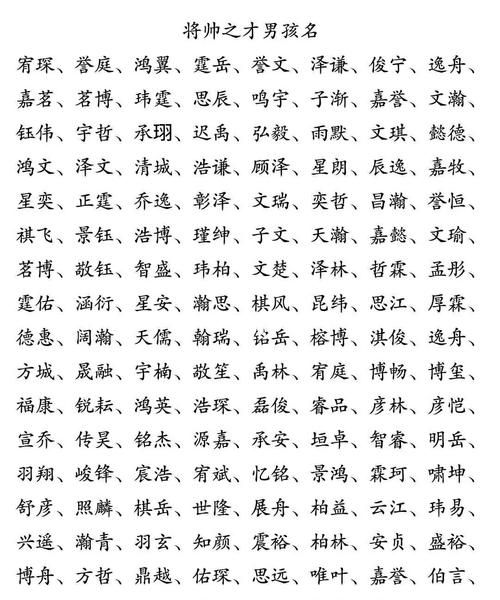 将帅之才男孩名
宥琛、誉庭、鸿翼、霆岳、誉文、泽谦、俊宁、逸舟、
嘉茗、茗博、玮霆、思辰、鸣宇、子渐、嘉誉、文瀚、
钰伟、宇哲、承珝、迟禹、弘毅、雨默、文琪、懿德、
鸿文、泽文、清城、浩谦、顾泽、星朗、辰逸、嘉牧、
星奕、正霆、乔逸、彰泽、文瑞、奕哲、昌瀚、誉恒、
祺飞、景钰、浩博、瑾绅、子文、天瀚、嘉懿、文瑜、
茗博、敬钰、智盛、玮柏、文楚、泽林、哲霖、孟彤、
霆佑、涵衍、星安、瀚思、棋风、昆纬、思江、厚霖、
德惠、阔瀚、天儒、翰瑞、铭岳、榕博、淇俊、逸舟、
方城、晟融、宇楠、敬笙、禹林、宥庭、博畅、博玺、
福康、锐耘、鸿英、浩琛、磊俊、睿品、彦林、彦恺、
宣乔、传昊、铭杰、源嘉、承安、垣卓、智睿、明岳、
羽翔、峻锋、宸浩、宥斌、忆铭、景鸿、霖珂、啸坤、
舒彦、照麟、棋岳、世隆、展舟、柏益、云江、玮易、
兴遥、瀚青、羽玄、知颜、震裕、柏林、安贞、盛裕、
博舟、方哲、鼎越、佑琛、思远、唯叶、嘉誉、伯言、